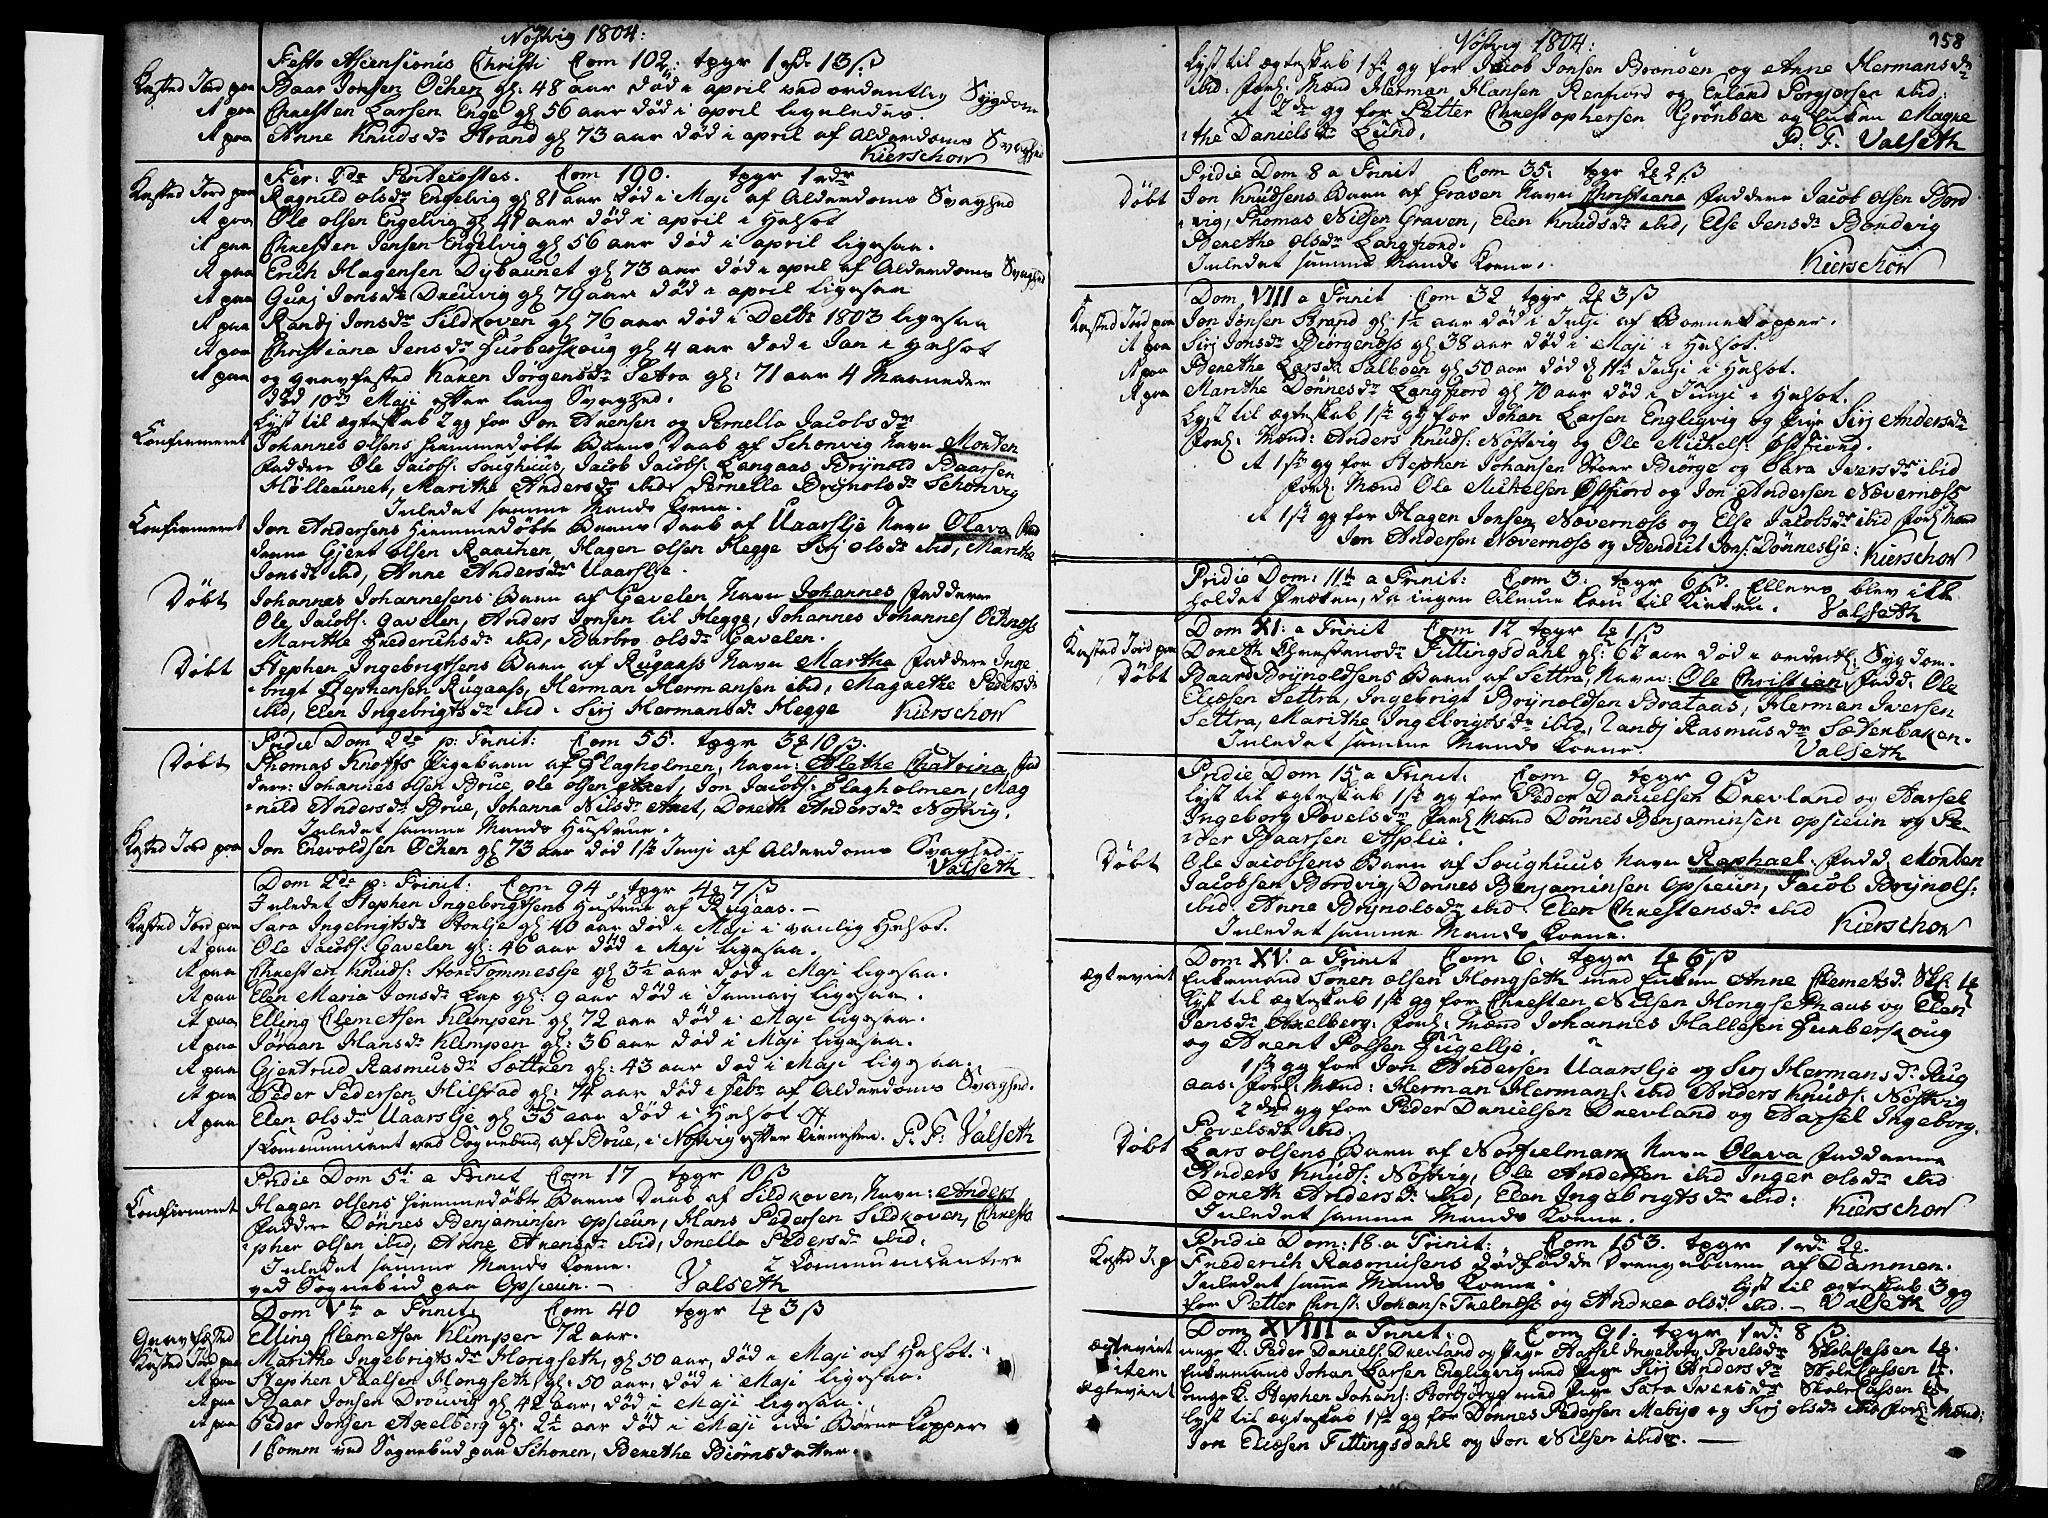 Nøstvig 1804:
Festo Ascensionis Christi Com 102, tpgr 1 rdr 13 ß
Kasted Jord paa Baar Jonsen Ochen gl: 48 aar død i april ved ordentlig Sygdom
it paa Chresten Larsen Enge gl 56 aar død i april ligeledes.
it paa Anne Knudsdr Strand gl 73 aar død i april af Alderdoms Svaghed
Kierschow
Fer: 2da Pentecostes. Com 190. tpgr 1 rdr
Kasted Jord paa Ragnild olsdr Engelvig gl 81 aar død i Maji af Alderdoms Svaghed
it paa Ole olsen Engelvig gl 41 aar død i april i Helsot
it paa Chresten Jensen Engelvig gl 56 aar død i april ligesaa.
it paa Erich Hagensen Dybaunet gl 73 aar død i april af Alderdoms Svaghed
it paa Gurj Jonsdr Dreuvig gl 79 aar død i april ligesaa
it paa Randj Jonsdr Sildkoven gl 76 aar død i Decbr 1803 ligesaa
it paa Christiana Jensdr Furberskoug gl 4 aar død i Jan i Helsot
it paa og gravfested Karen Jørgensdr Setra gl: 71 aar 4 Maaneder
død 10de Maji efter lang Svaghed.
lyst til egteskab 2 gg for Jon Arensen og Pernella Jacobsdr
Confirmeret Johannes olsens hiemmedøbte Barns Daab af Schonvig Navn Morten
Faddere Ole Jacobs: Soughuus, Jacob Jacobs: Langaas Brynild Baarsen
Hølleaunet, Marithe Andersdr ibid, Pernella Brynolsdr Schonvig
Inledet samme Mands Kone.
Confirmeret Jon Andersens hiemmedøbte Barns Daab af Uaarslje Navn Olava Fad
derne Gjert olsen Raachen, Hagen olsen Hegge Sirj olsdr ibid, Marithe
Jonsdr ibid, Anne Andersdr Uaarslje.
Døbt Johannes Johannesens Barn af Gavelen Navn Johannes Faddere
Ole Jacobs: Gavelen, Anders Jonsen lil Hegge, Johannes Johannes: Ochnes
Marithe Frederichsdr ibid, Barbro olsdr Gavelen.
Døbt Stephen Ingebrigtsens Barn af Rugaass Navn Marthe Faddere Inge
brigt Stephensen Rugaass, Herman Hermansen ibid, Magrethe Pedersdr
ibid, Elen Ingebrigtsdr ibid. Sirj Hermansdr Hegge Kierschow
Pridie Dom 2da p: Trinit: Com 55. tpgr 3 ʒ 10 ß.
Døbt Thomas Knoffs Pigebarn af Flagholmen, Navn: Alethe Chatrina, Fad
dere: Johannes olsen Brue, ole olsen Aaret, Jon Jacobs: Flagholmen, Mag
nild Andersdr Brue, Johanna Nilsdr Aaret, Doreth Andersdr Nøstvig.
Inledet samme Mands Hustrue.
Kasted Jord paa Jon Enevoldsen Ochen gl 73 aar død 1ste Junji af Alderdoms Svaghed.
Valseth
Dom 2da p: Trinit: Com 94 tpgr 4 ʒ 7 ß
Inledet Stephen Ingebrigtsens Hustrue af Rugaas.
Kasted Jord paa Sara Ingebrigtsdr Stoelje gl 40 aar død i Maji i vanlig Helsot.
it paa Ole Jacobs: Gavelen gl: 46 aar død i Maji ligesaa.
it paa Chresten Knuds: Store Tommeslje gl 3½ aar død i Maji ligesaa.
it paa Elen Maria Jonsdr Lap gl: 9 aar død i Januarj ligesaa.
it paa Elling Clemetsen Klimpen gl 72 aar død i Maji ligesaa.
it paa Jøraan Hansdr Klimpen gl: 36 aar død i Maji ligesaa.
it paa Gjertrud Rasmusdr Sættren gl: 43 aar død i Maji ligesaa.
it paa Peder Pedersen Hilstad gl: 74 aar død i Febr af Alderdoms Svaghed.
it paa Elen olsdr Uaarslje gl 35 aar død i Helsot.
1 Communicant ved Sognebud af Brue, i Nøstvig efter tienesten. P. F: Valseth
Pridie Dom 5t a Trinit Com 17 tpgr 10 ß
Confirmeret Hagen olsens hiemmedøbte Barns Daab af Sildkoven, Navn: Anders
Faddere Dønnes Benjaminsen opsieun, Hans Pedersen Sildkoven, Christo
pher olsen ibid, Anne Arensdr ibid, Jonella Pedersdr ibid.
Inledet samme Mands Kone. 2 Communicantere
ved Sognebud paa Opsieun. Valseth
Dom Vte a Trinit: Com 40 tpgr 1 ʒ 3 ß
Gravfæsted Elling Clemetsen Klimpen 72 aar.
Kasted Jord paa Marithe Ingebrigtsdr Horigseth, gl 50 aar, død i Maji af Helsot.
it paa Stephen Paalsen Hongseth gl: 50 aar, død i Maji ligesaa.
it paa Baar Jonsen Drouvig gl 42 aar, død i Maji ligesaa.
it paa Peder Jonsen Axelberg gl: 2½ aar død i Maji udi Børne Kopper
1 Comm ved Sognebud paa Schonen, Berethe Biørnsdatter.
Nøstvig 1804:
158
lyst til egteskab 1ste gg for Jacob Jonsen Brønsen og Anne Hermansdr
ibid: forl: Mænd Herman Hansen Renfiord og Erland Torgjersen ibid:
it 2den gg for Petter Christophersen Grønbek og enken Magre
the Danielsdr Lund. P: F. Valseth
Pridie Dom 8 a Trinit Com 35: tpgr 2 ʒ 2 ß
Døbt Jon Knudsens Barn af Graven Navn Christiana Faddere Jacob olsen Bord
vig, Thomas Nilsen Graven, Elen Knudsdr ibid, Else Jensdr Bordvig
Berethe olsdr Langfiord.
Inledet samme Mands Kone. Kierschow
Dom VIII a Trinit Com 32 tpgr 2 ʒ 3 ß
Kasted Jord paa Jon Jonsen Strand gl: 1½ aar død i Julji af Børnekopper.
it paa Sirj Jonsdr Biørgenæss gl: 38 aar død i Maji i Helsot.
it paa Berethe Larsdr Salboen gl 50 aar død d 11te Junji i Helsot.
it paa Marithe Dønnesdr Langfiord gl 70 aar død i Junji i Helsot.
lyst til egteskab 1ste gg for Johan Larsen Engligvig og Pige Sirj Andersdr
forl: Mænd: Anders Knuds: Nøstvig og Ole Mikkels: Østfiord.
it 1ste gg for Stephen Johansen Stoer Biørge og Sara Iversdr ibid
forl: Mænd Ole Mikkelsen Østfiord og Jon Andersen Nævernæss
it 1ste gg for Hagen Jonsen Nævernæss og Else Jacobsdr ibid forl: Mænd
Jon Andersen Nævernæss og Bendict Jons: Dønneslje: Kierschow
Pridie Dom: 11te a Trinit: Com 3: tpgr 6 ß. Ellers blev ikke
holdet Præken, da ingen Almue kom til Kirken. Valseth
Dom XI: a Trinit Com 12 tpgr 1 ʒ 1 ß
Kasted Jord paa Doreth Chrestensdr Fittingsdahl gl: 6½ aar død i ordentl: Sygdom.
Døbt Baar Brynoldsens Barn af Settra, Navn: Ole Christian, Fadd: Ole
Eliesen Settra, Ingebrigt Brynoldsen Brataas, Herman Iversen
Settra, Marithe Ingebrigtsdr ibid, Randj Rasmusdr Sætenbaken.
Inledet samme Mands Kone. Valseth
Pridie Dom 15 a Trinit: Com 9 tpgr 9 ß
lyst til egteskab 1ste gg for Peder Danielsen Drevland og Aarsel
Ingeborg Povelsdr forl: Mænd Dønnes Benjaminsen opsieun og Pe
der Baarsen Asplie.
Døbt Ole Jacobsens Barn af Soughuus Navn Raphael. Fadd: Morten
Jacobsen Bordvig, Dønnes Benjaminsen Opsieun, Jacob Brynols:
ibid, Anne Brynolsdr ibid. Elen Chrestensdr ibid
Inledet samme Mands Kone. Kierschow
Dom XV: a Trinit Com 6: tpgr 1 ʒ 6 ß
egtevint Enkemand Søren olsen Hongseth med Enken Anne Clemetsd. Skl: 1 ʒ
lyst til egteskab 1ste gg for Chresten Nilsen Hongsethaas og Elen
Jensdr Axelberg: forl: Mænd Johannes Hallesen Furberskoug
og Arent Polsen Fugellje.
1ste gg for Jon Andersen Uaarslje og Sirj Hermansd: Rug
aas: forl: Mænd: Herman Hermans: ibid Anders Knuds: Nøstvig
2den gg for Peder Danielsen Drevland og Aarsel Ingeborg
Povelsdr ibid.
Døbt Lars olsens Barn af Norfielmark Navn Olava Fadderne
Anders Knuds: Nøstvig, Ole Andersen ibid Inger olsdr ibid
Doreth Andersdr ibid, Elen Ingebrigtsdr ibid:
Inledet samme Mands Kone. Kierschow
Pridie Dom: 18. a Trinit: Com 153. tpgr 1 rdr 2 ʒ.
Kasted J: p Frederich Rasmusens dødfødde Drengebarn af Dammen.
Inledet samme Mands Kone. lyst til egteskab 3 gg
for Petter Christ: Johans: Trelnæss og Andrea olsd. ibid. Valseth
Dom XVIII a Trinit: Com 91. tpgr 1 rdr 8 ß.
egtevint unge K. Peder Daniels: Drevland og Pige Aarsel Ingeborg Povelsdr Skolekassen 1 ʒ.
item Enkemand Johan Larsen Engligvig med Pige Sirj Andersdr Skolekassen 1 ʒ.
egtevint unge K. Stephen Johans: Storbiørge med Pige Sara Iversdr Skolekassen 1 ʒ.
lyst til egteskab 1ste gg for Dønnes Pedersen Mebye og Sirj olsdr ibid forl: Mænd:
Jon Eliesen Fittingsdahl og Jon Nilsen ibider.